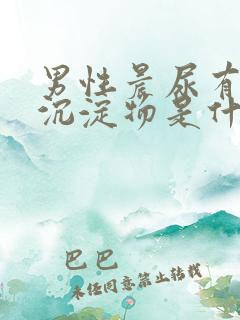 男性晨尿有
沉淀物是什
巴巴
未经同意禁止转载